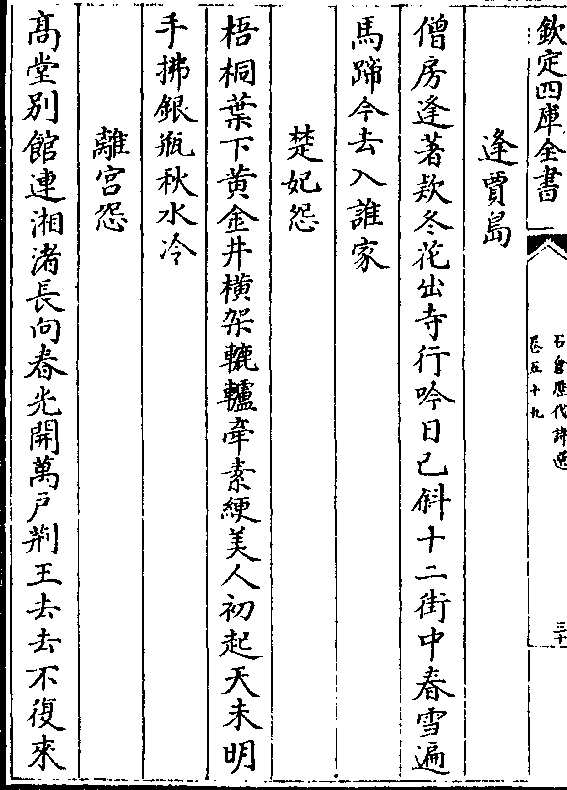 欽定四庫全書
石倉歷代詩選
卷五十九
三十
逢賈島
僧房逢著款冬花出寺行吟日已斜十二街中春雪遍
馬蹄今去入誰家
楚妃怨
梧桐葉下黄金井橫架轆轤牽素綆美人初起天未明
手拂銀瓶秋水冷
離宮怨
髙堂別館連湘渚長向春光開萬戶荆王去去不復來